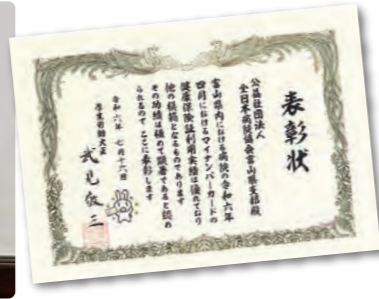 表彰状
公益社団法人
全日本病院協会富山県支部殿
富山県内における病院の令和六年
四月におけるマイナンバーカードの
健康保険証利用実績は優れており
他の模範となるものであります
その功績は極めて顕著であると認め
られるので ここに表彰します
令和六年 七月十六日
厚生労働大臣
武見敬三